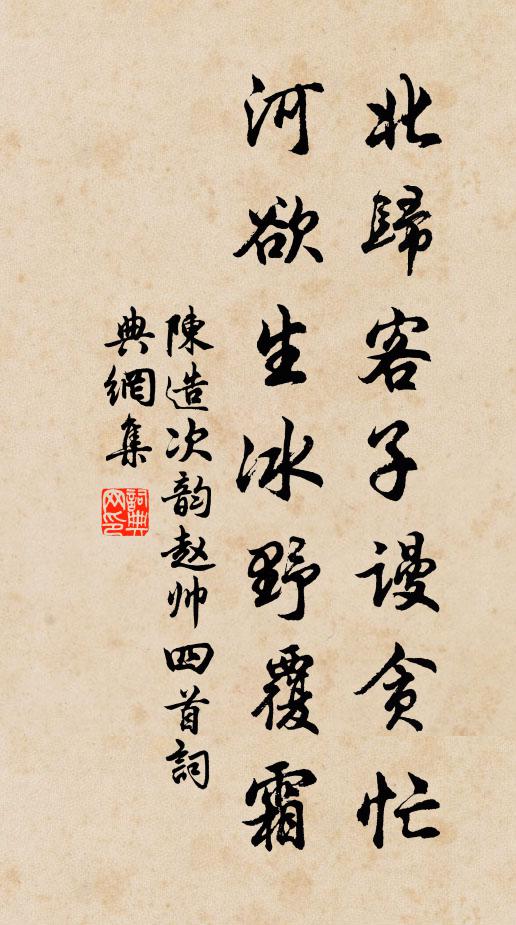 北歸客子謾貪忙
河欲生冰野覆霜
陳造次韵赵帅四首詞
典網集
詞典网印